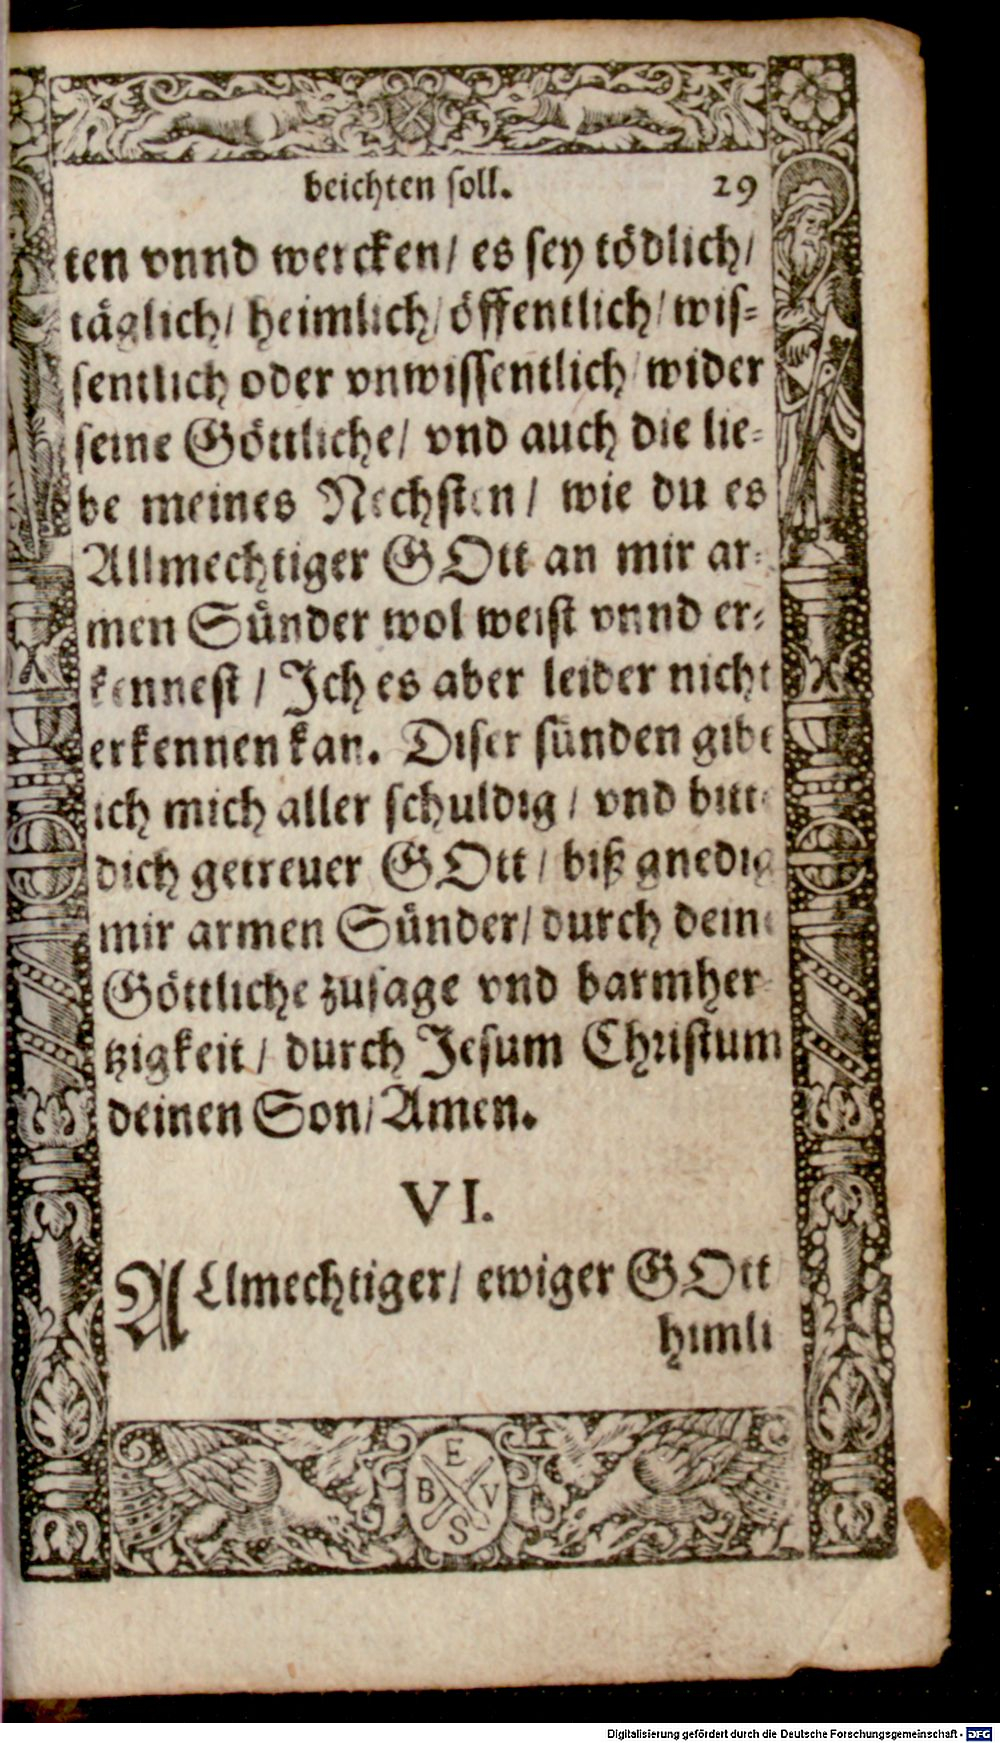 beichten soll. 29
ten vnnd wercken/ es sey tödlich/
täglich/ heimlich/ öffentlich/ wis-
sentlich oder vnwissentlich/ wider
seine Göttliche/ vnd auch die lie-
be meines Nechsten/ wie du es
Allmechtiger GOtt an mir ar-
men Sünder wol weist vnnd er-
kennest/ Ich es aber leider nicht
erkennen kan. Diser sünden gibe
ich mich aller schuldig/ vnd bitte
dich getreuer GOtt/ biß gnedig
mir armen Sünder/ durch deine
Göttliche zusage vnd barmher-
tzigkeit/ durch Jesum Christum
deinen Son/ Amen.
VI.
ALlmechtiger/ ewiger GOtt
himli
E
B V
S
Digitalisierung gefördert durch die Deutsche Forschungsgemeinschaft - DFG